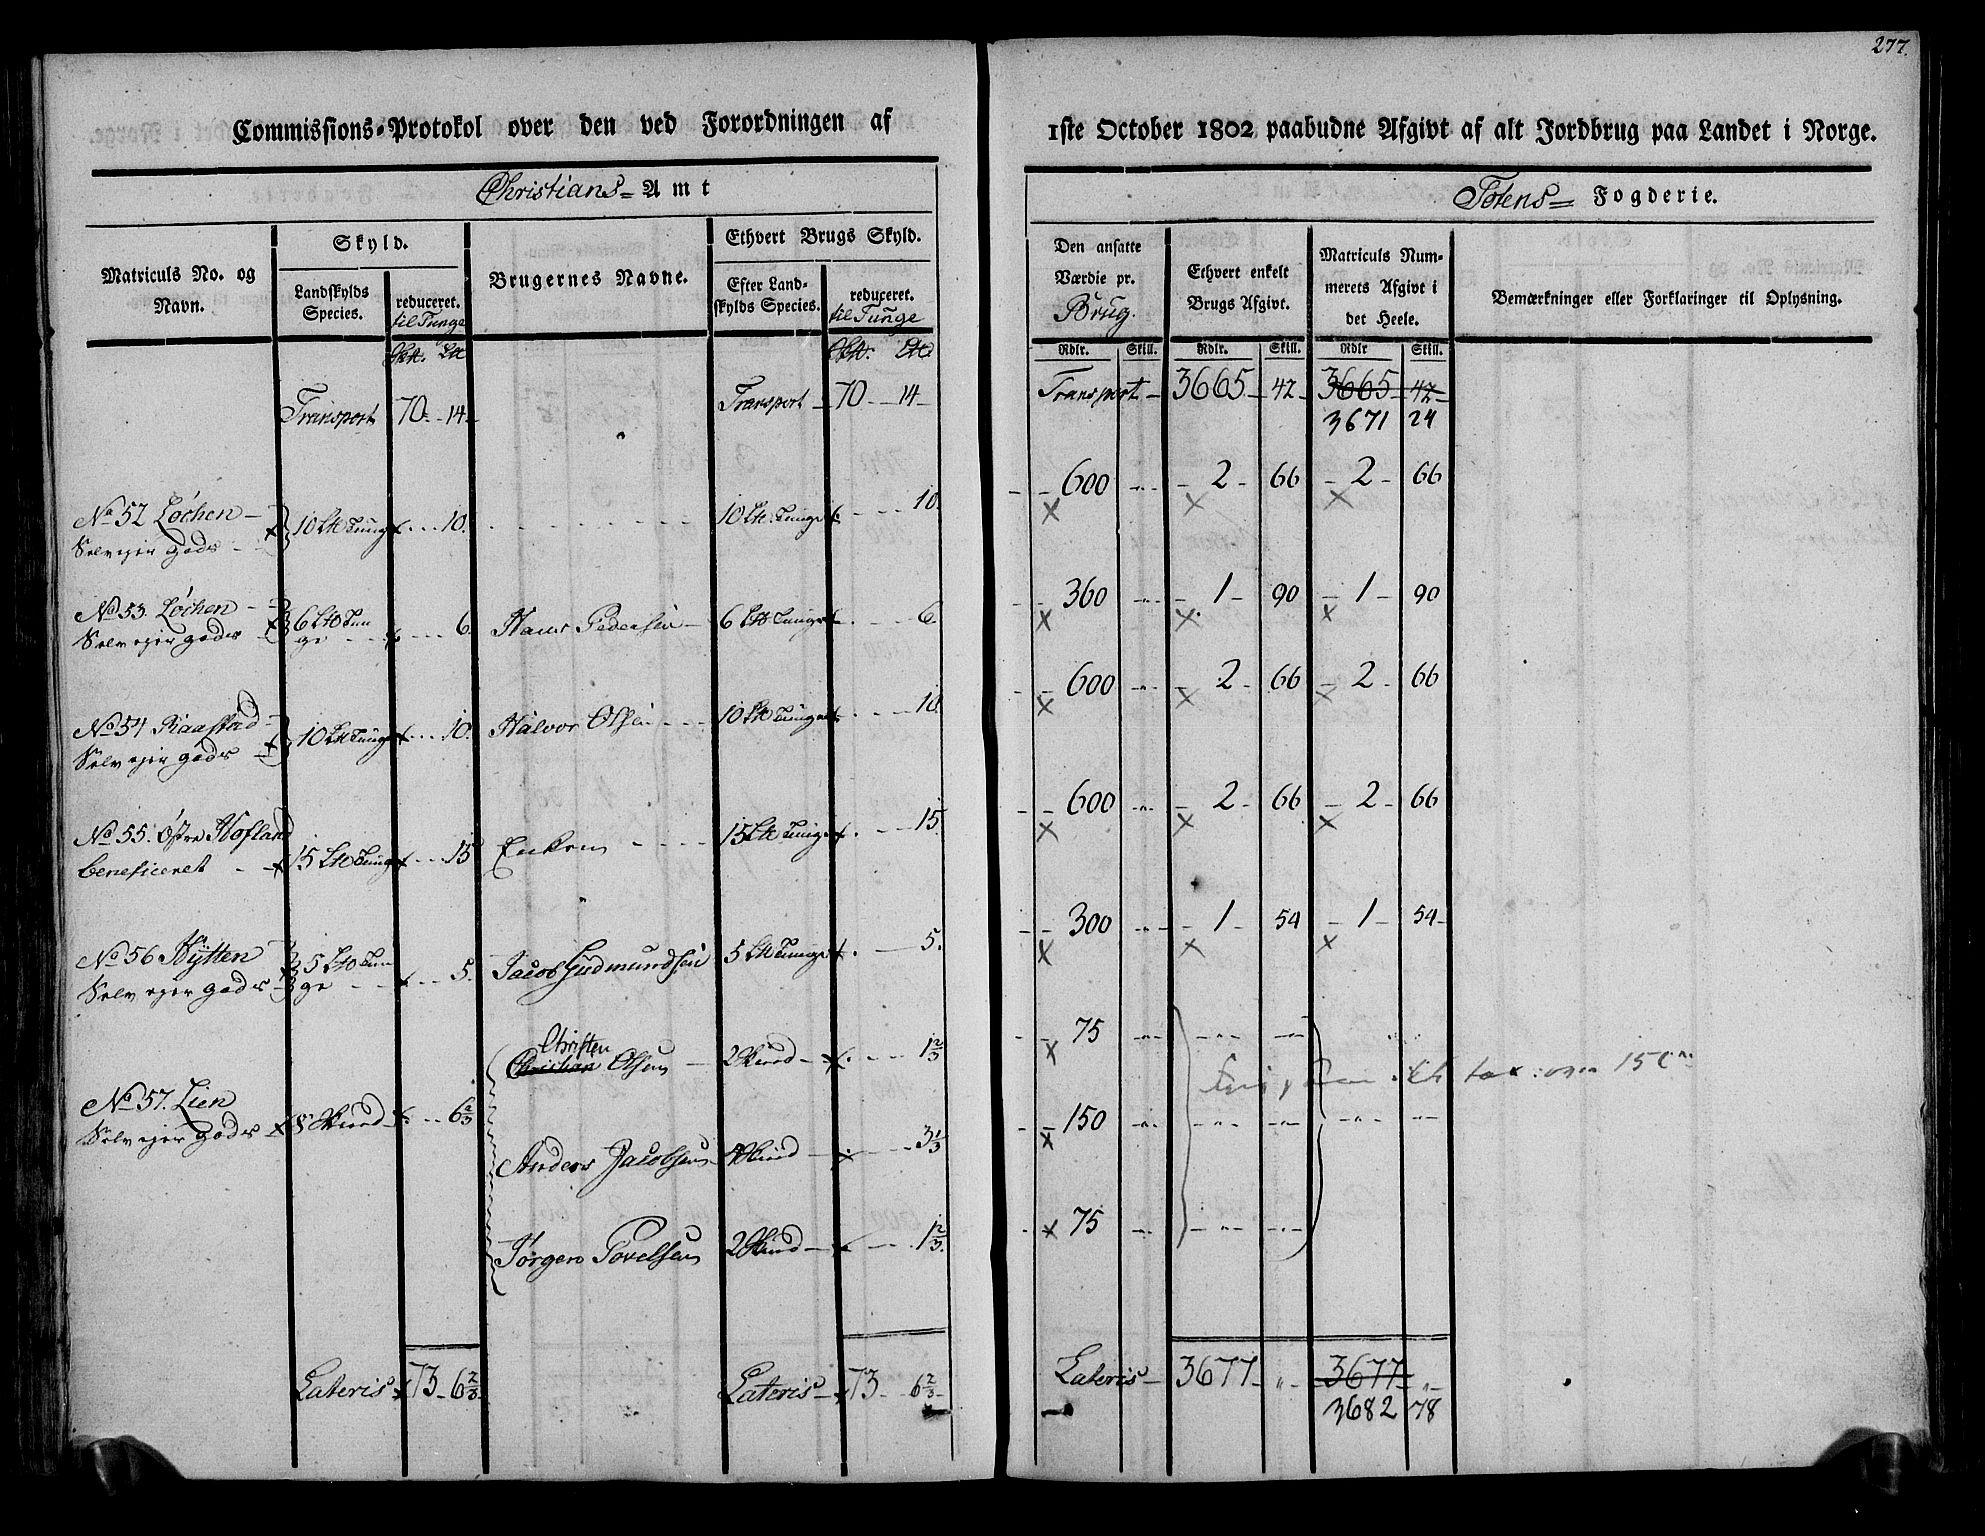 277.
Commissions-Protokol over den ved Forordningen af 1ste October 1802 paabudne Afgivt af alt Jordbrug paa Landet i Norge.
Christians- Amt
Totens- Fogderie.
Matriculs No. og Navn.
Skyld.
Landskylds Species.
reduceret. til Tunge
Brugernes Navne.
Ethvert Brugs Skyld.
Efter Landskylds Species.
reduceret. til Tunge
Den ansatte Værdie pr. Brug.
Ethvert enkelt Brugs Afgivt.
Matriculs Nummerets Afgivt i det Heele.
Bemærkninger eller Forklaringer til Oplysning.
Rdlr. Skill. Rdlr. Skill. Rdlr Skill.
Transport 70 - 14 - Transport - 70 - 14 - Transport - 3665 - 42 - 3665 - 42 -
3671 24
No 52 Løchen - 10 Ltt Tunge 10. 10 Ltt. Tunge 10. 600 2 - 66 2 - 66
Selvejer gods
No 53. Løchen - 6 Ltt Tunge 6. Hans Pedersen - 6 Ltt Tunge 6. 360 1 - 90 1 - 90
Selvejer gods
No 54 Raastad 10 Ltt Tunge 10. Halvor Olsen 10 Ltt Tunge 10. 600 2 - 66 2 - 66
Selvejer gods
No 55. Østre Hofland 15 Ltt Tunge 15 Enken 15 Ltt Tunge 15. 600 2 - 66 2 - 66
beneficeret
No 56 Hÿtten 5 Ltt Tunge 5. Jacob Gudmundsen 5 Ltt Tunge 5. 300 1 - 54 1 - 54 -
Selvejer gods
Christen
Christian Olsen 2 Skind 1 2/3 75
No 57. Lien 8 Skind 6 2/3
Selvejer gods
Anders Jacobsen 4 Skind 3 1/3 150
Jørgen Povelsen 2 Skind 1 2/3. 75
Lateris 73 - 6 2/3 Lateris - 73 - 6 2/3 Lateris - 3677 - „ - 3677 - „ -
3682 78